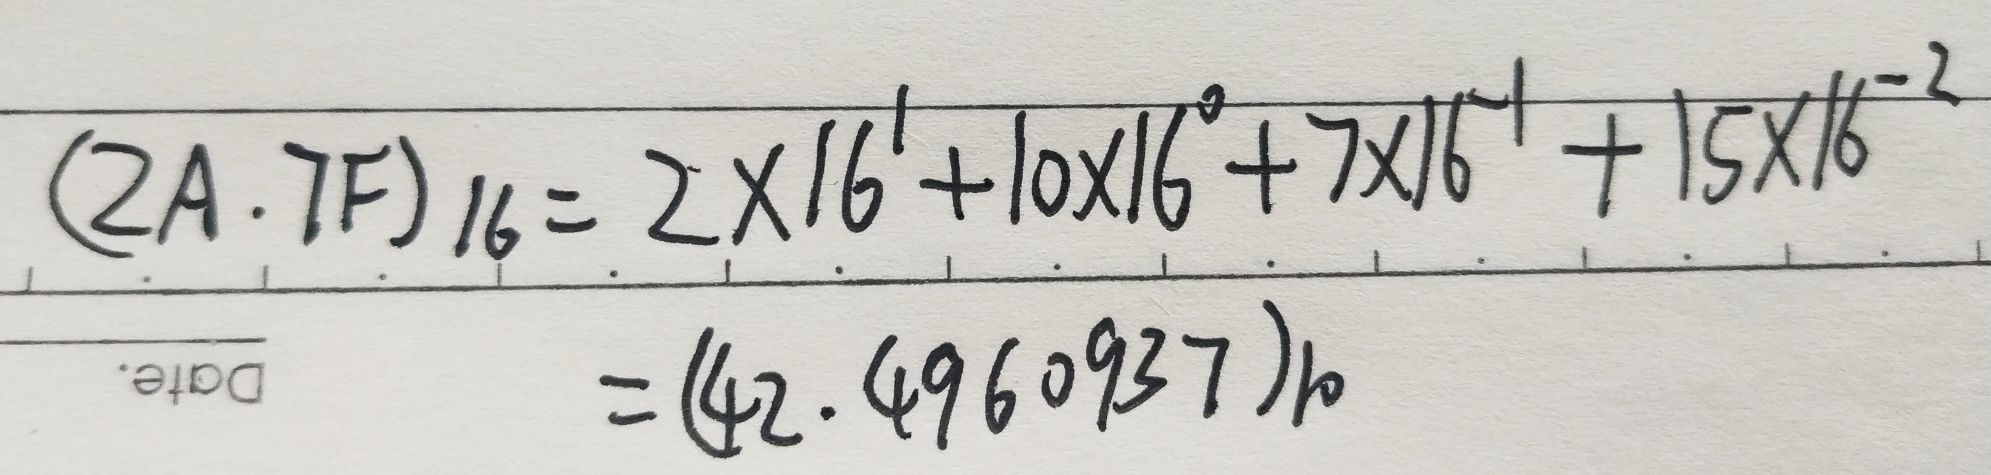 (2A.7F)₁₆ = 2×16¹+10×16⁰+7×16⁻¹+15×16⁻²
=(42.4960937)₁₀
Date.